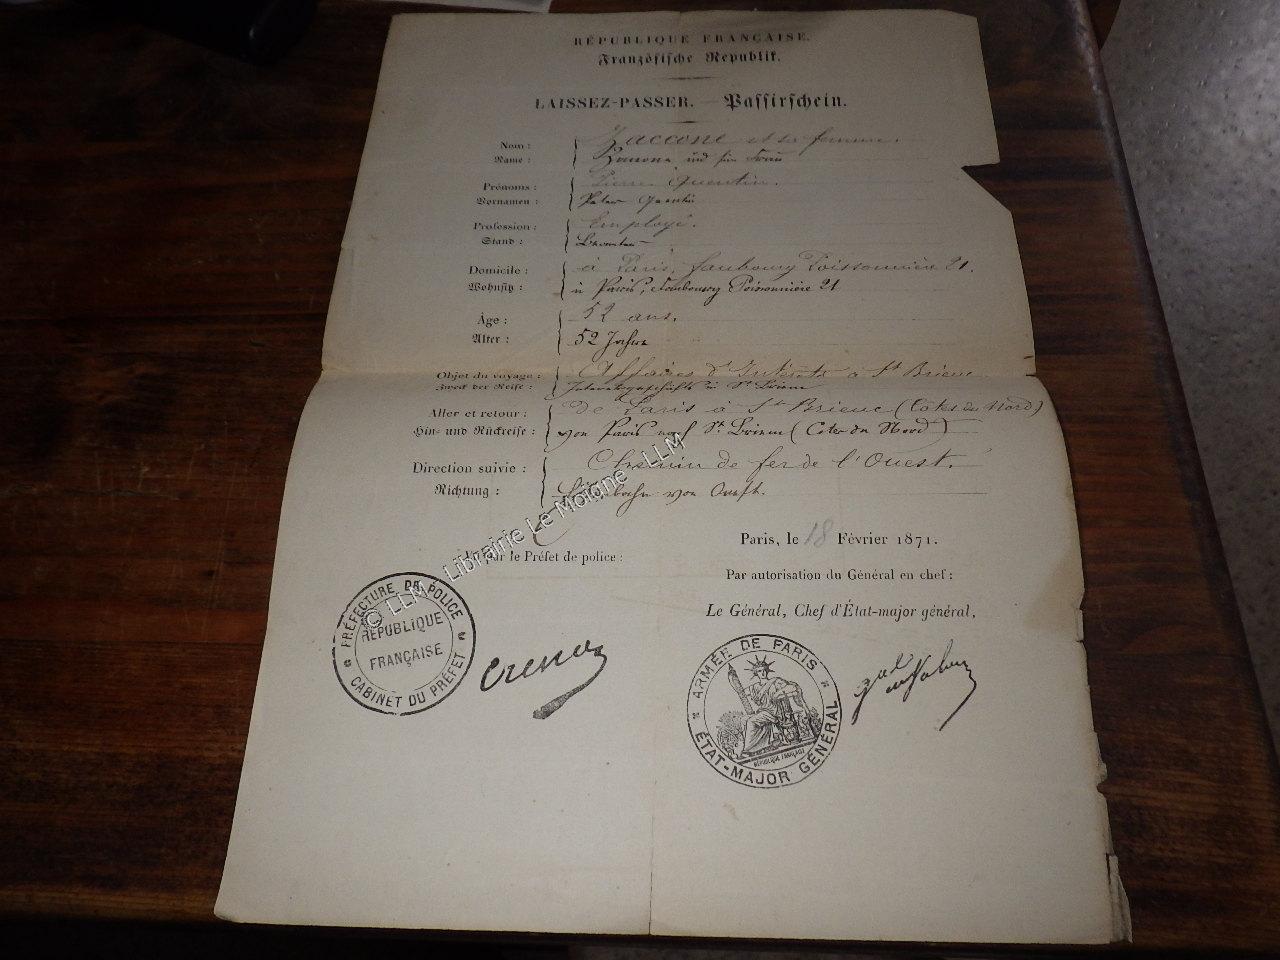 RÉPUBLIQUE FRANÇAISE.
Französische Republik.
LAISSEZ-PASSER. — Passirschein.
Nom : Zaccone et sa femme.
Name : Zaccone und sein Frau
Prénoms : Pierre Quentin.
Vornamen : Peter Quentin
Profession : Employé.
Stand : Beamter
Domicile : à Paris, faubourg Poissonnière 21.
Wohnsitz : in Paris, Faubourg Poissonnière 21
Âge : 52 ans.
Alter : 52 Jahre
Objet du voyage : Affaires d'Intérêts à St Brieuc
Zweck der Reise : in St Brieuc
Aller et retour : de Paris à St Brieuc (Côtes du Nord)
Hin- und Rückreise : von Paris nach St Brieuc (Cotes du Nord)
Direction suivie : Chemin de fer de l'Ouest.
Richtung : von Ouest.
Paris, le 18 Février 1871.
le Préfet de police :
Par autorisation du Général en chef :
Le Général, Chef d'État-major général,
PRÉFECTURE DE POLICE
RÉPUBLIQUE
FRANÇAISE
CABINET DU PRÉFET
ARMÉE DE PARIS
RÉPUBLIQUE FRANÇAISE
ÉTAT-MAJOR GÉNÉRAL
© LLM - Librairie Le Moigne - LLM